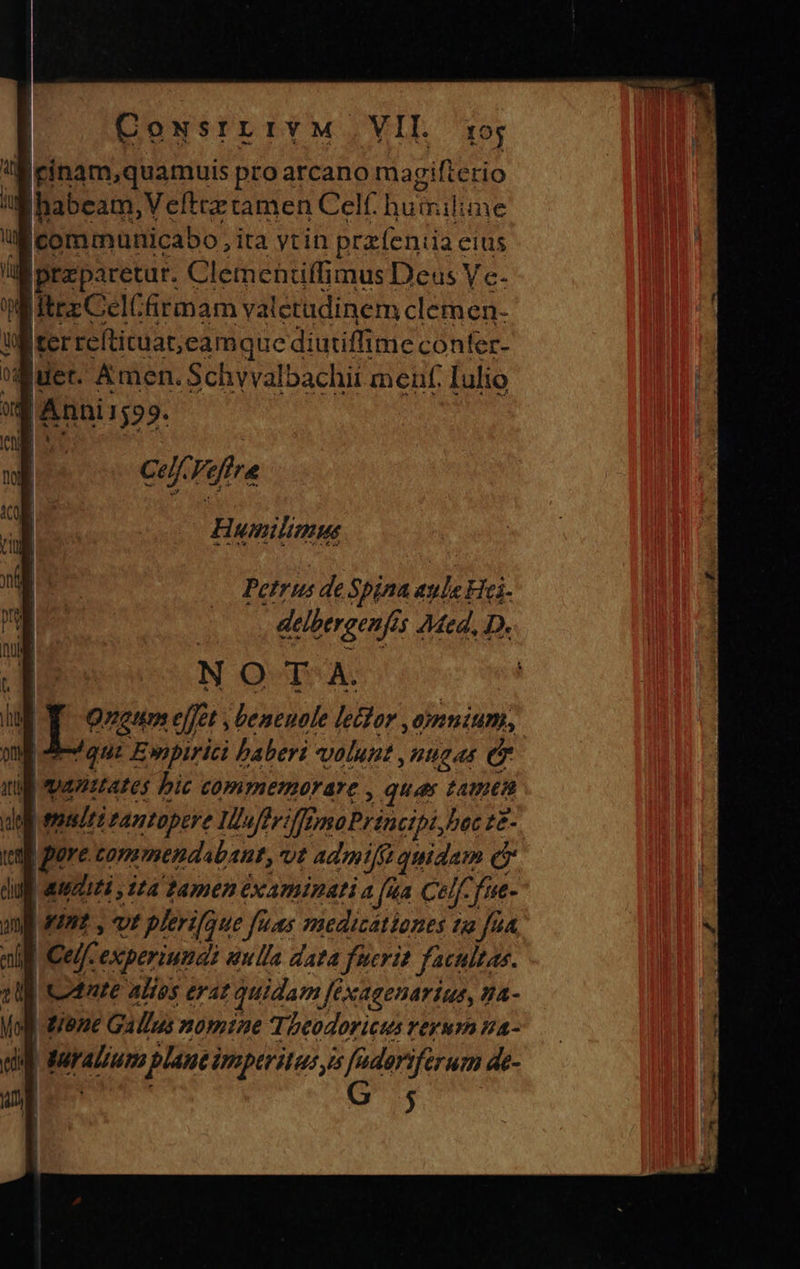 CONSILIVM VII. 105
cinam, quamuis pro arcano magiſterio
habeam, Veſtræ tamen Celſ. humilime
communicabo, ita vt in præſentia eius
præparetur. Clementiſſimus Deus Ve-
ſtræ Celſ. firmam valetudinem clemen-
ter reſtituat, eamque diutiſſime confer-
uet. Amen. Schvvalbachii menſ. Iulio
Anni 1599.
Celſ. Veſtræ
Humilimus
Petrus de Spina aulæ Hei-
delbergenſis Med. D.
NOTA.
Longum eſſet, beneuole lector, omnium,
qui Empirici haberi volunt, nugas &
vanitates hic commemorare, quas tamen
multi tantopere Illuſtriſſimo Principi, hoc tē-
pore commendabant, vt admiſſi quidam &
auditi, ita tamen examinati a ſua Celſ. fue-
rint, vt pleriſque ſuas medicationes in ſua
Celſ. experiundi nulla data fuerit facultas.
Ante alios erat quidam ſexagenarius, na-
tione Gallus nomine Theodoricus rerum na-
turalium plane imperitus, is ſudoriferum de-
G 5